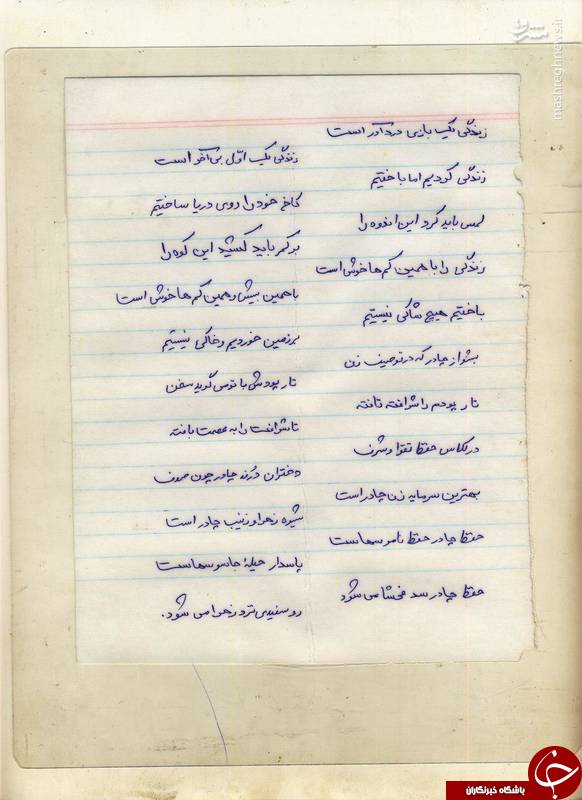 مشرق
mashreghnews.ir
زندگی یک بازی درد آور است
زندگی یک اول بی آخر است
زندگی کردیم اما باختیم
کاخ خود را روی دریا ساختیم
لمس باید کرد این اندوه را
بر کمر باید کشید این کوه را
زندگی را با همین کم ها خوش است
با همین بیش و همین کم ها خوش است
باختیم هیچ شاکی نیستیم
بر زمین خوردیم و خاکی نیستیم
بشنو از چادر که در توصیف زن
تار پودش با تو می گوید سخن
تار پودم را شرافت تافته
تا شرافت را به عصمت بافته
در کلاس حفظ تقوا و شرف
دختران دُرند چادر چون صدف
بهترین سرمایه زن چادر است
شیوه زهرا و زینب چادر است
حفظ چادر حفظ ناموسهاست
پاسدار حیلهٔ جاسوسهاست
حفظ چادر سد فحشا می شود
رو سفیدی نزد زهرا می شود.
باشگاه خبرنگاران